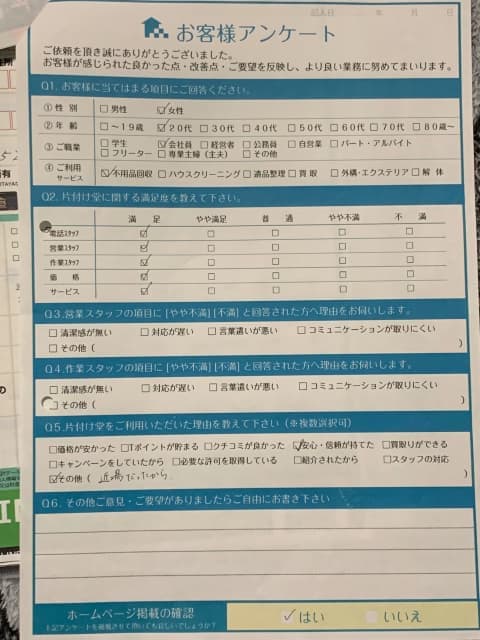 記入日 年 月 日
お客様アンケート
ご依頼を頂き誠にありがとうございました。
お客様が感じられた良かった点・改善点・ご要望を反映し、より良い業務に努めてまいります。
Q1. お客様に当てはまる項目にご回答ください。
①性 別 □男性 ☑女性
②年 齢 □～19歳 ☑20代 □30代 □40代 □50代 □60代 □70代 □80歳～
③ご職業 □学生 ☑会社員 □経営者 □公務員 □自営業 □パート・アルバイト
□フリーター □専業主婦(主夫) □その他
④ご利用サービス ☑不用品回収 □ハウスクリーニング □遺品整理 □買 取 □外構・エクステリア □解 体
Q2. 片付け堂に関する満足度を教えて下さい。
満 足 やや満足 普 通 やや不満 不 満
電話スタッフ ☑ □ □ □ □
営業スタッフ ☑ □ □ □ □
作業スタッフ ☑ □ □ □ □
価 格 ☑ □ □ □ □
サービス ☑ □ □ □ □
Q3. 営業スタッフの項目に [やや不満] [不満] と回答された方へ理由をお伺いします。
□清潔感が無い □対応が遅い □言葉遣いが悪い □コミュニケーションが取りにくい
□その他 ( )
Q4. 作業スタッフの項目に [やや不満] [不満] と回答された方へ理由をお伺いします。
□清潔感が無い □対応が遅い □言葉遣いが悪い □コミュニケーションが取りにくい
□その他 ( )
Q5. 片付け堂をご利用いただいた理由を教えて下さい (※複数選択可)
□価格が安かった □Tポイントが貯まる □クチコミが良かった ☑安心・信頼が持てた □買取りができる
□キャンペーンをしていたから □必要な許可を取得している □紹介されたから □スタッフの対応
☑その他 ( 近場だったから )
Q6. その他ご意見・ご要望がありましたらご自由にお書き下さい
ホームページ掲載の確認 ☑はい □いいえ
上記アンケートを掲載させて頂いても宜しいでしょうか?